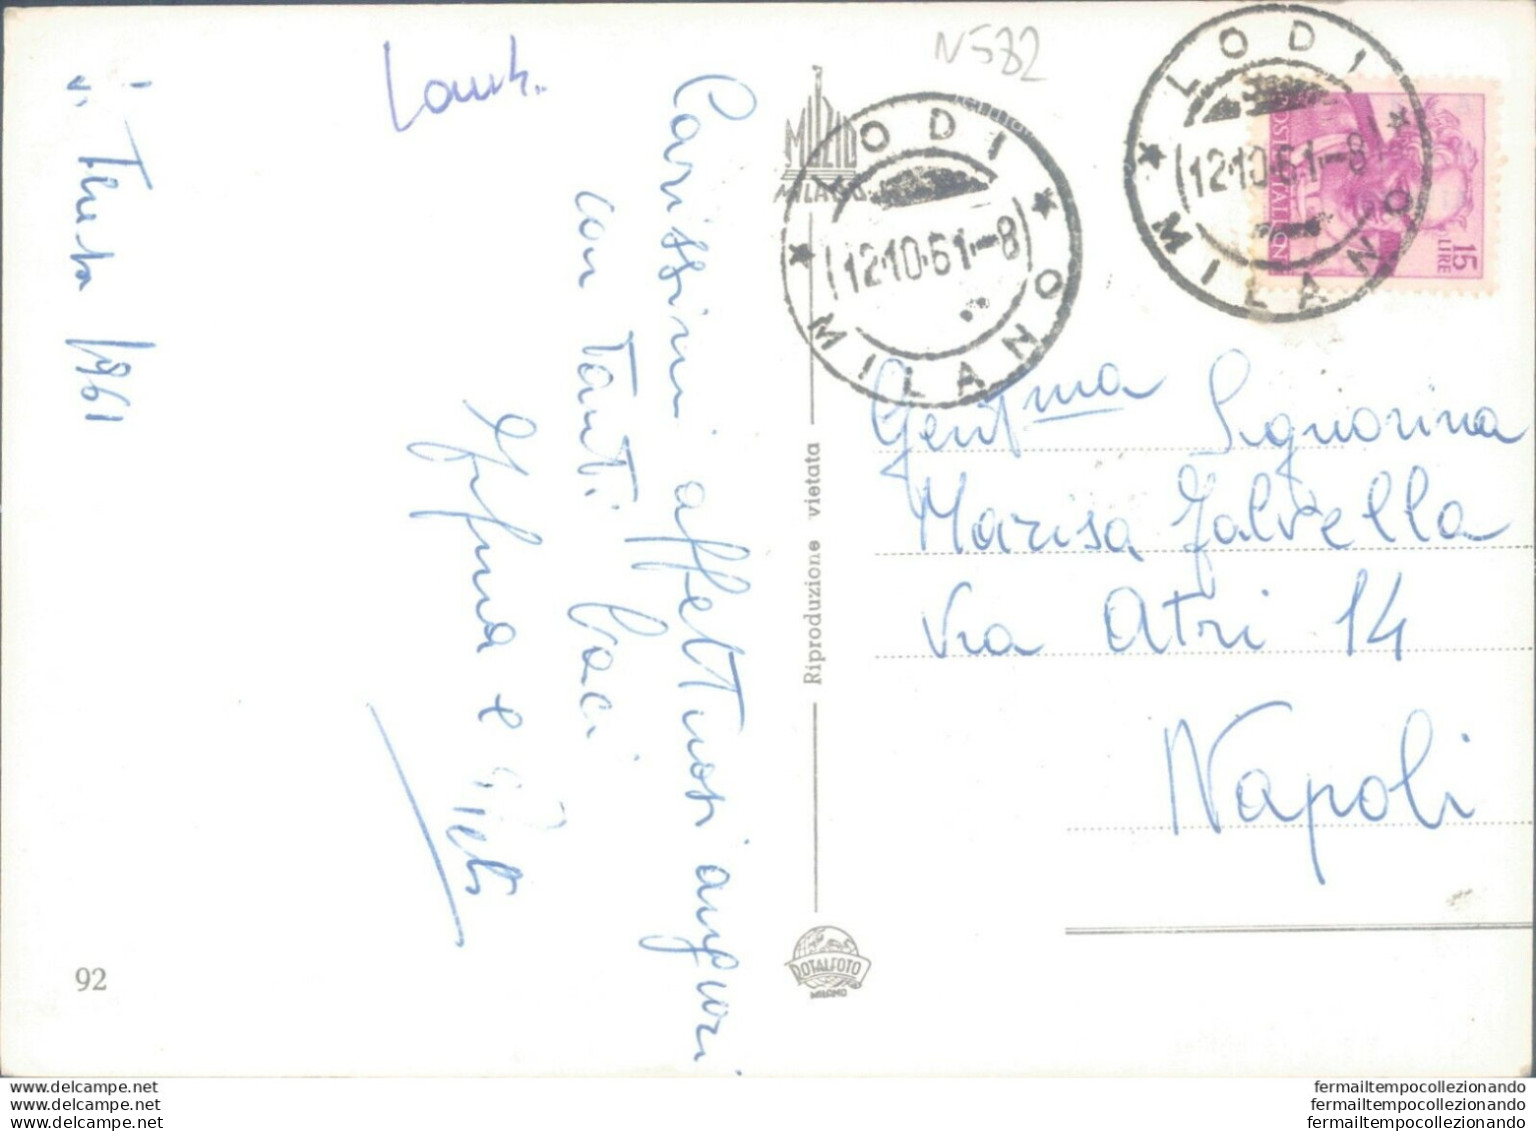 N582
LODI
MILANO
12·10·61-8
LODI
MILANO
12·10·61-8
15
LIRE
MILANO
S. Teresa 1961
Carissimi affettuosi auguri
con tanti baci
e
Riproduzione vietata
Gent.ma Signorina
Marisa Zalvella
Via Atri 14
Napoli
92
ROTALFOTO
MILANO
www.delcampe.net
www.delcampe.net
www.delcampe.net
fermailtempocollezionando
fermailtempocollezionando
fermailtempocollezionando